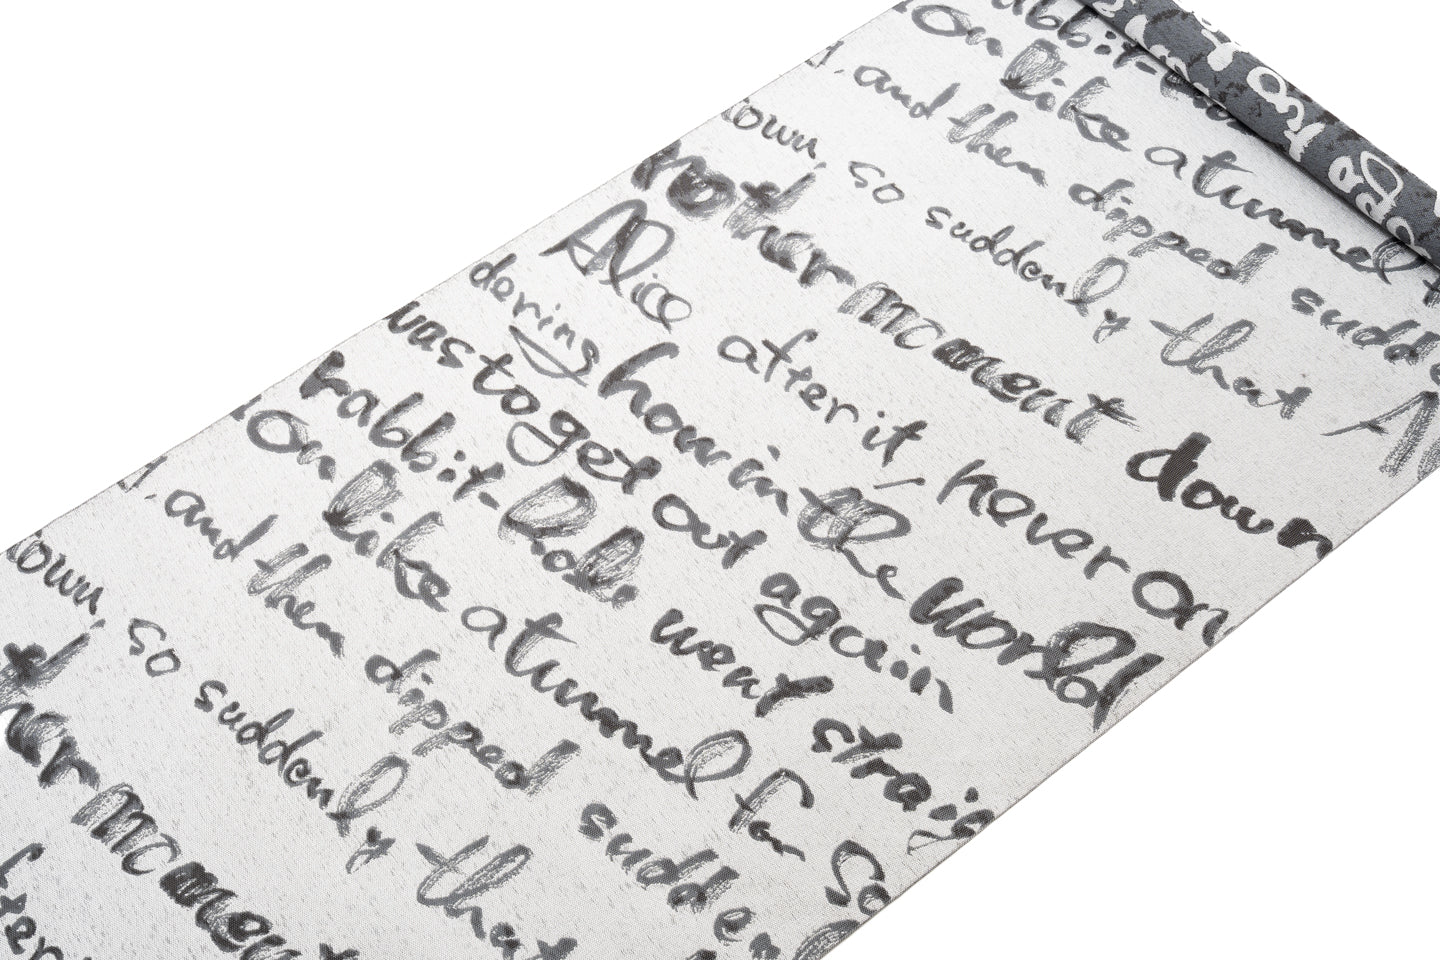 rabbit-
on like a tunnel f
d, and then dipped sudde
down, so suddenly that Al
nother moment down
Alice after it, never on
dering how in the world
was to get out again
rabbit-hole went straig
ion like a tunnel for so
d, and then dipped sudden
down, so suddenly that
ther moment
fter